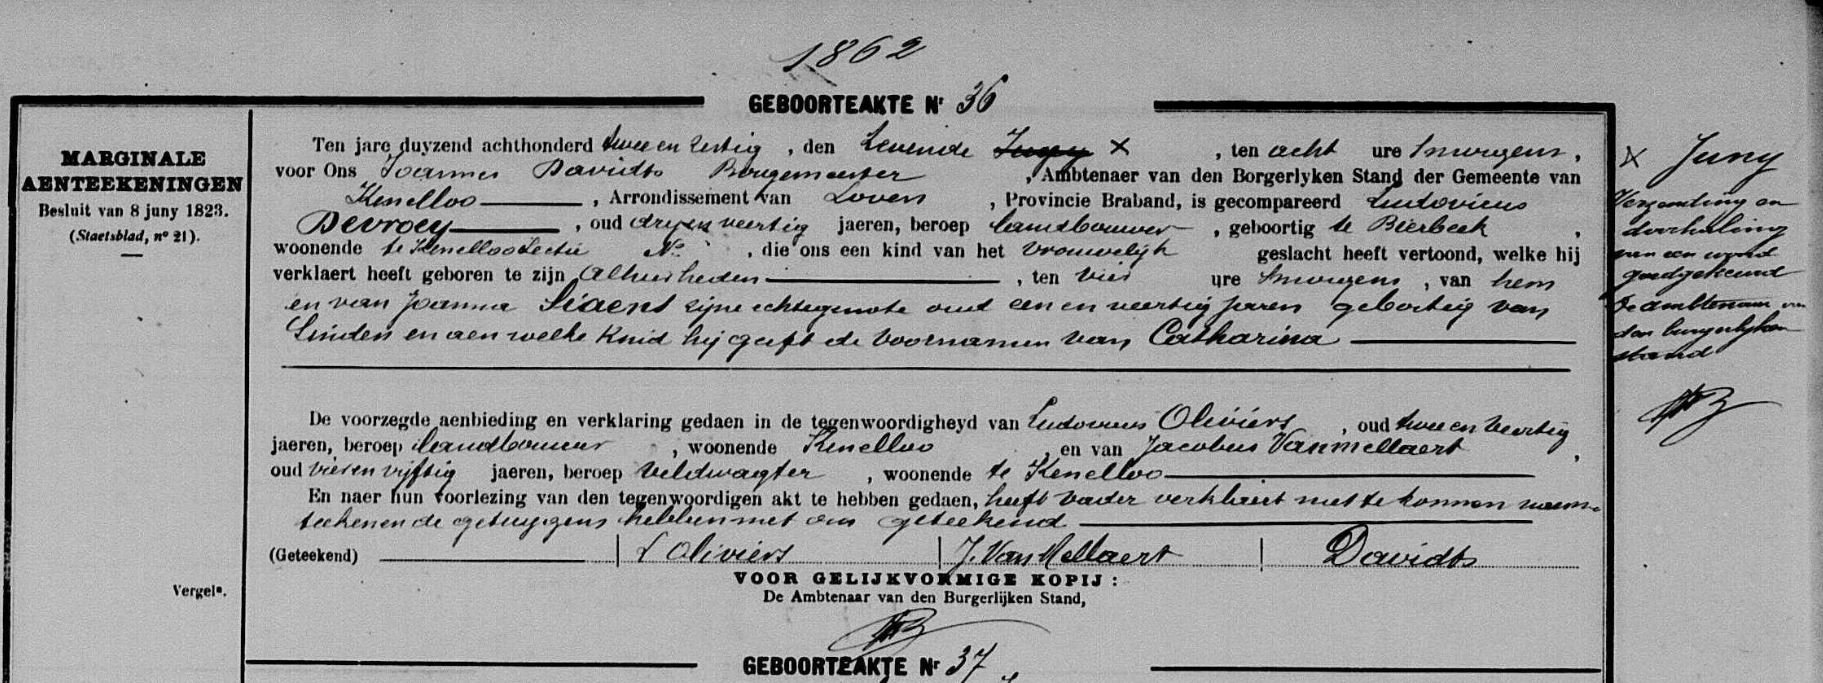 1862
GEBOORTEAKTE Nr 36
MARGINALE
AENTEEKENINGEN
Besluit van 8 juny 1823.
(Staetsblad, no 21).
Ten jare duyzend achthonderd twee en zestig, den zevende ✕, ten acht ure smorgens,
voor Ons Joannes Davidts Borgemeester, Ambtenaer van den Borgerlyken Stand der Gemeente van
Kesselloo, Arrondissement van Loven, Provincie Braband, is gecompareerd Ludovicus
Devroey, oud dry en veertig jaeren, beroep landbouwer, geboortig te Bierbeek,
woonende te Kesselloo Sectie No, die ons een kind van het vrouwelijk geslacht heeft vertoond, welke hij
verklaert heeft geboren te zijn alhier heden, ten vier ure smorgens, van hem
en van Joanna Siaens zijne echtegenote oud een en veertig jaren gebortig van
Linden en aen welke kind hij geeft de voornamen van Catharina
✕ Juny
Verzending en
doorhaling
van een woord
goedgekeurd
De ambtenaar van
den burgerlyken
stand
De voorzegde aenbieding en verklaring gedaen in de tegenwoordigheyd van Ludovicus Oliviers, oud twee en veertig
jaeren, beroep landbouwer, woonende Kesselloo, en van Jacobus Vanmellaert
oud vier en vyftig jaeren, beroep veldwagter, woonende te Kesselloo
En naer hun voorlezing van den tegenwoordigen akt te hebben gedaen, heeft vader verklaert niet te konnen naem-
teekenen de getuygens hebben met ons geteekend
(Geteekend) L Oliviers J. Van Mellaert Davidts
VOOR GELIJKVORMIGE KOPIJ :
De Ambtenaar van den Burgerlijken Stand,
Vergeln.
GEBOORTEAKTE Nr 37